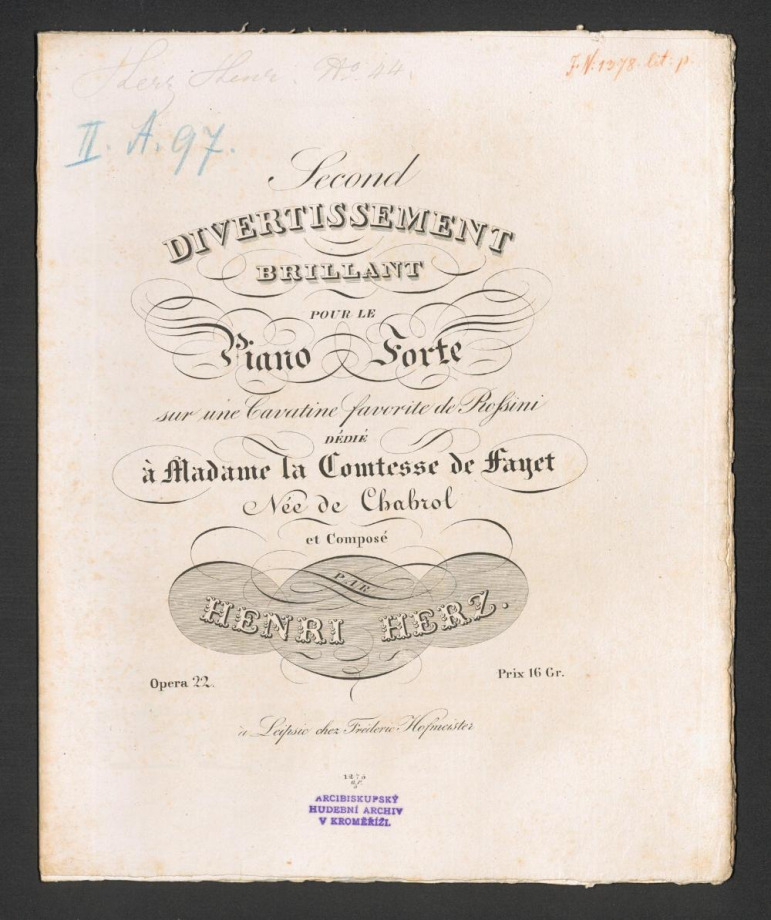 Herz Henr. No 44.
J. N. 1378. lit: p.
II. A. 97.
Second
DIVERTISSEMENT
BRILLANT
POUR LE
Piano Forte
sur une Cavatine favorite de Roſsini
DÉDIÉ
à Madame la Comtesse de Fayet
Née de Chabrol
et Composé
PAR
HENRI HERZ.
Opera 22.
Prix 16 Gr.
à Leipsic chez Fréderic Hofmeister
ARCIBISKUPSKÝ
HUDEBNÍ ARCHIV
V KROMĚŘÍŽI.